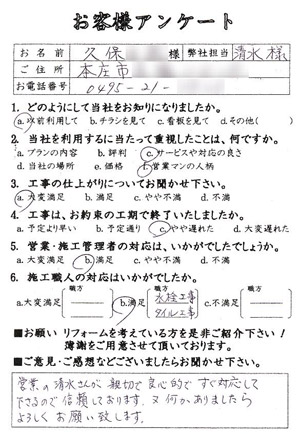 お客様アンケート
お名前 久保 様 弊社担当 清水 様
ご住所 本庄市
お電話番号 0495-21-
1. どのようにして当社をお知りになりましたか。
a.以前利用して b.チラシを見て c.看板を見て d.その他( )
2. 当社を利用するに当たって重視したことは、何ですか。
a.プランの内容 b.評判 c.サービスや対応の良さ
d.当社の場所 e.価格 f.営業マンの人柄
3. 工事の仕上がりについてお聞かせ下さい。
a.大変満足 b.満足 c.やや不満 d.不満
4. 工事は、お約束の工期で終了いたしましたか。
a.予定より早い b.予定通り c.やや遅れた d.大変遅れた
5. 営業・施工管理者の対応は、いかがでしたでしょうか。
a.大変満足 b.満足 c.やや不満 d.不満
6. 施工職人の対応はいかがでしたか。
a.大変満足 職方 b.満足 職方 水栓工事 タイル工事 c.不満足 職方
■お願い リフォームを考えている方を是非ご紹介下さい!
薄謝をご用意させて頂いております。
■ご意見・ご感想などございましたらお聞かせ下さい。
営業の清水さんが親切で良心的ですぐ対応して
下さるので信頼しております。又何かありましたら
よろしくお願い致します。